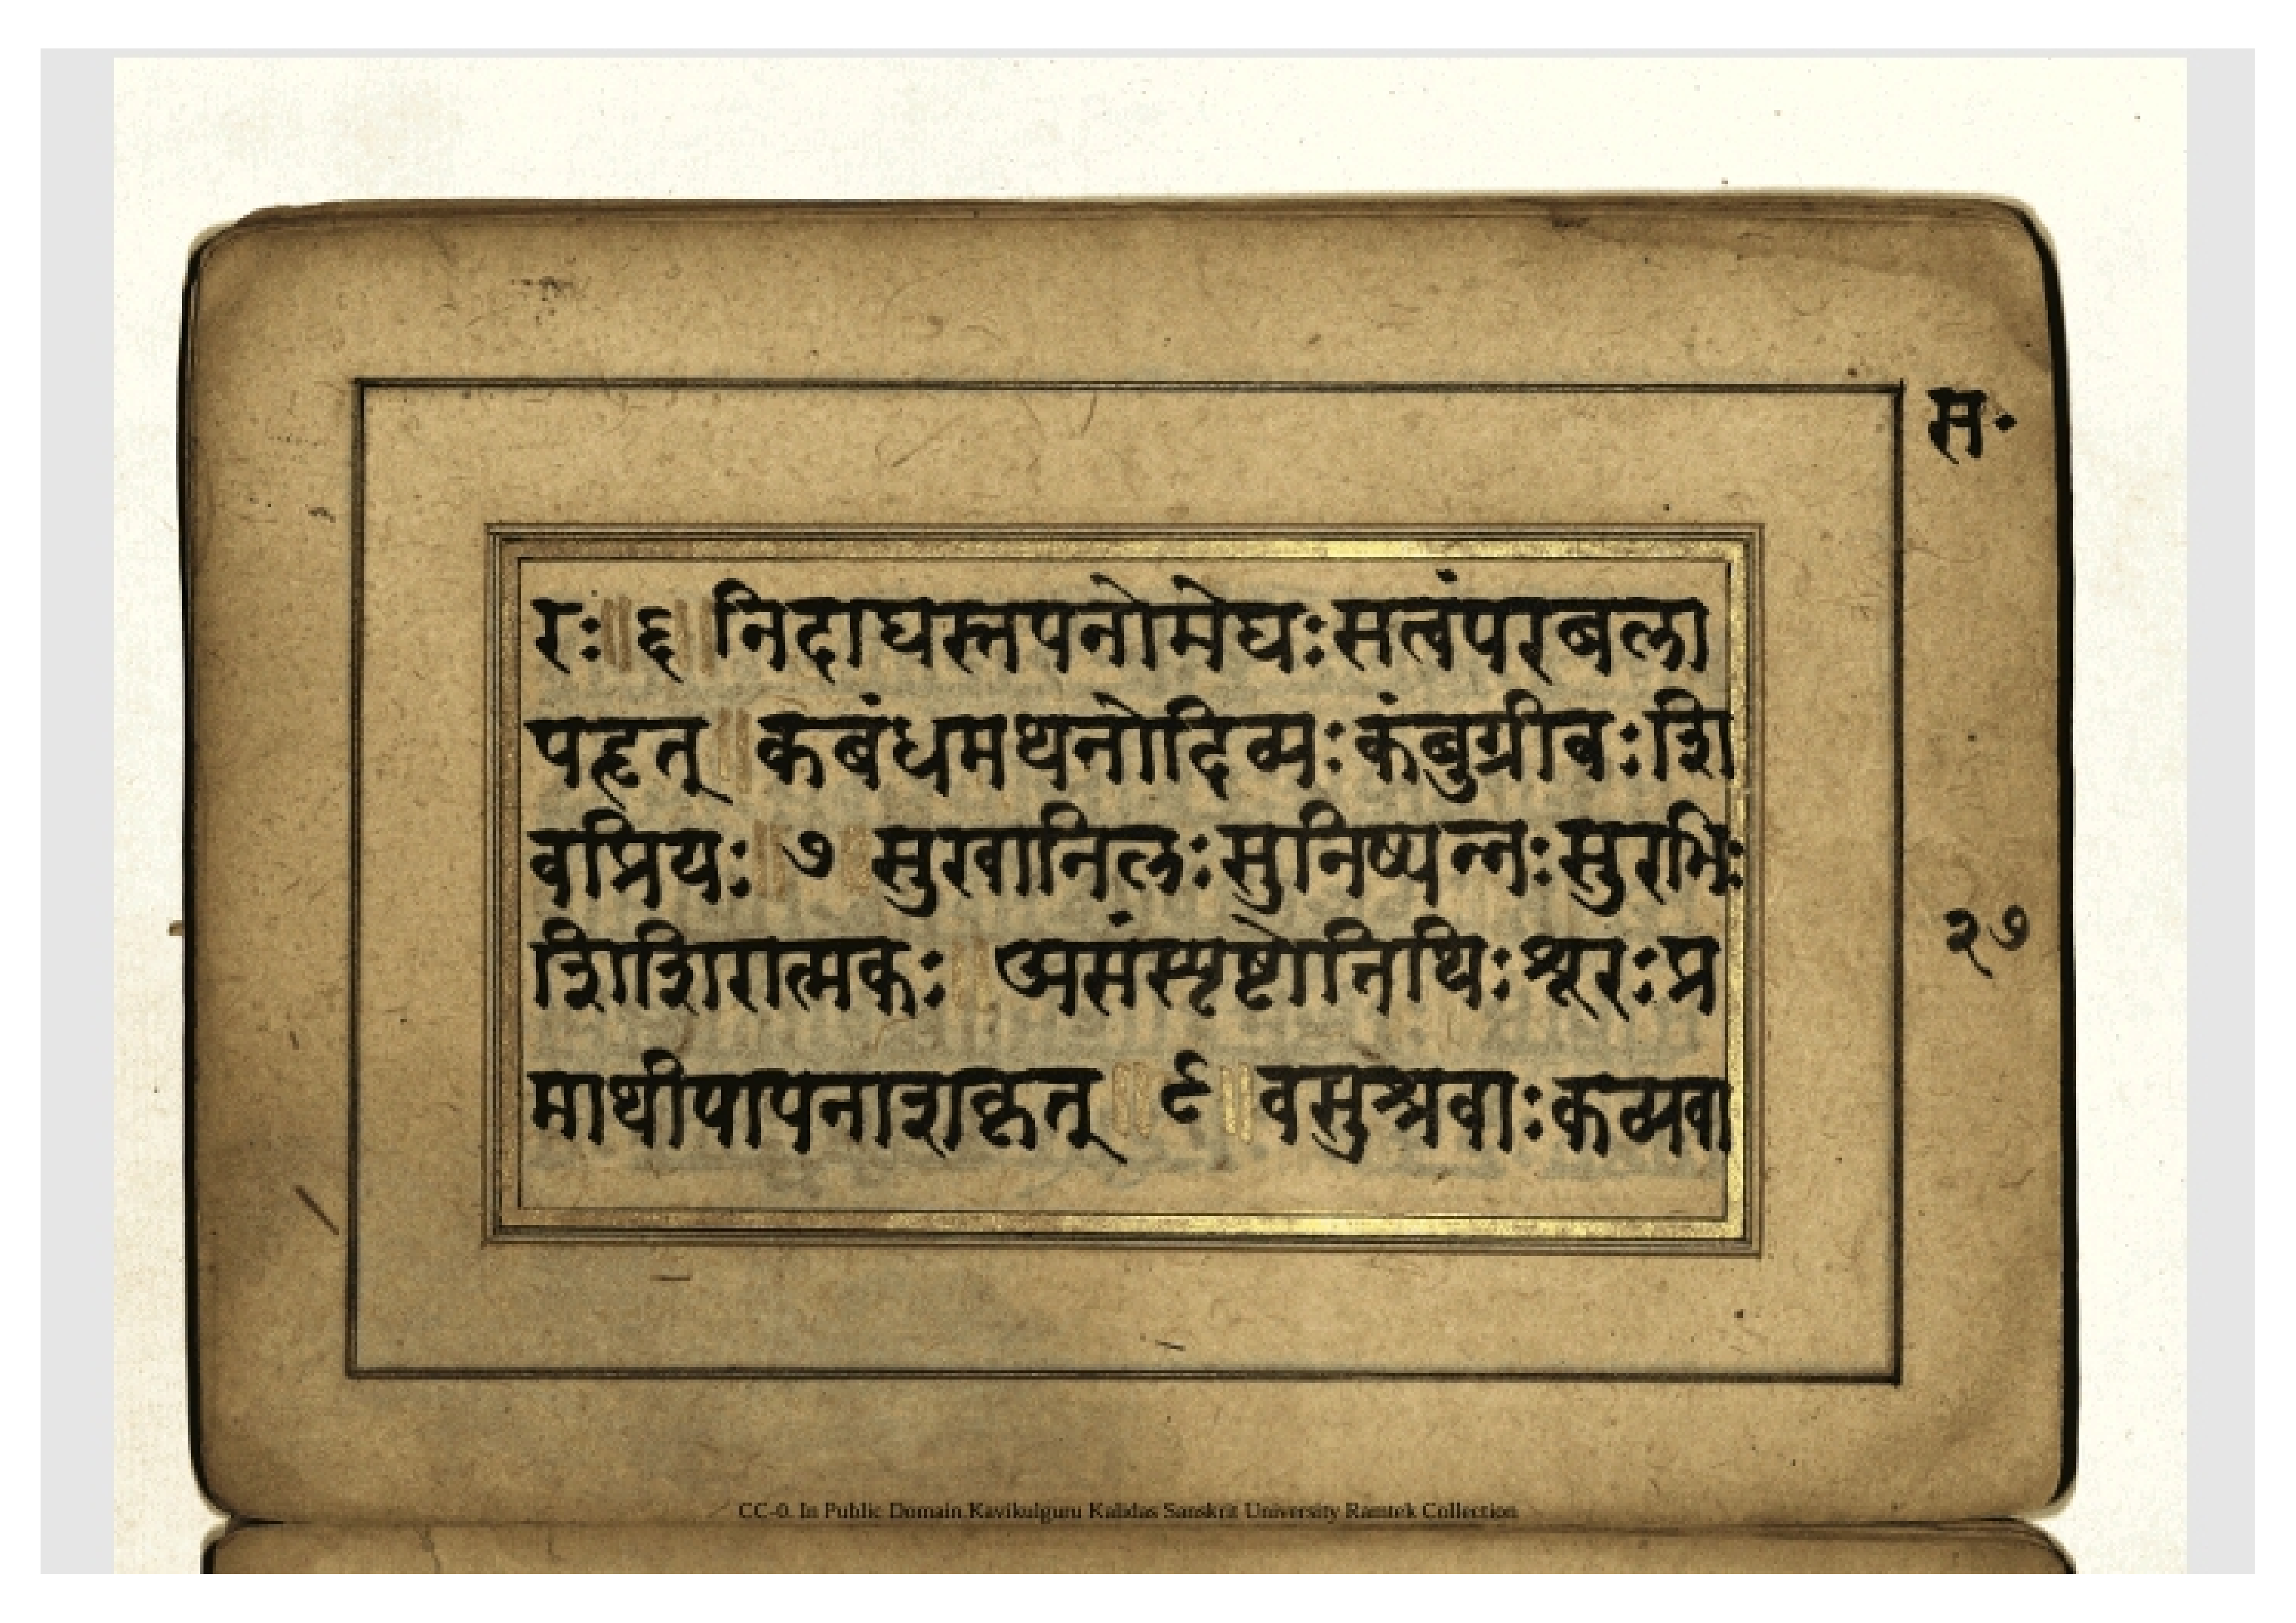 स॰
रः ॥ ६ ॥ निदाघस्तपनोमेघःसत्वंपरबला
पहृत् ॥ कबंधमथनोदिव्यःकंबुग्रीवःशि
वप्रियः ॥ ७ ॥ सुखानिलःसुनिष्पन्नःसुरभिः
शिशिरात्मकः ॥ असंसृष्टोतिथिःश्रूरःप्र
२७
माथीपापनाशकृत् ॥ ९ ॥ वसुश्रवाःकव्यवा
CC-0. In Public Domain.Kavikulguru Kalidas Sanskrit University Ramtek Collection